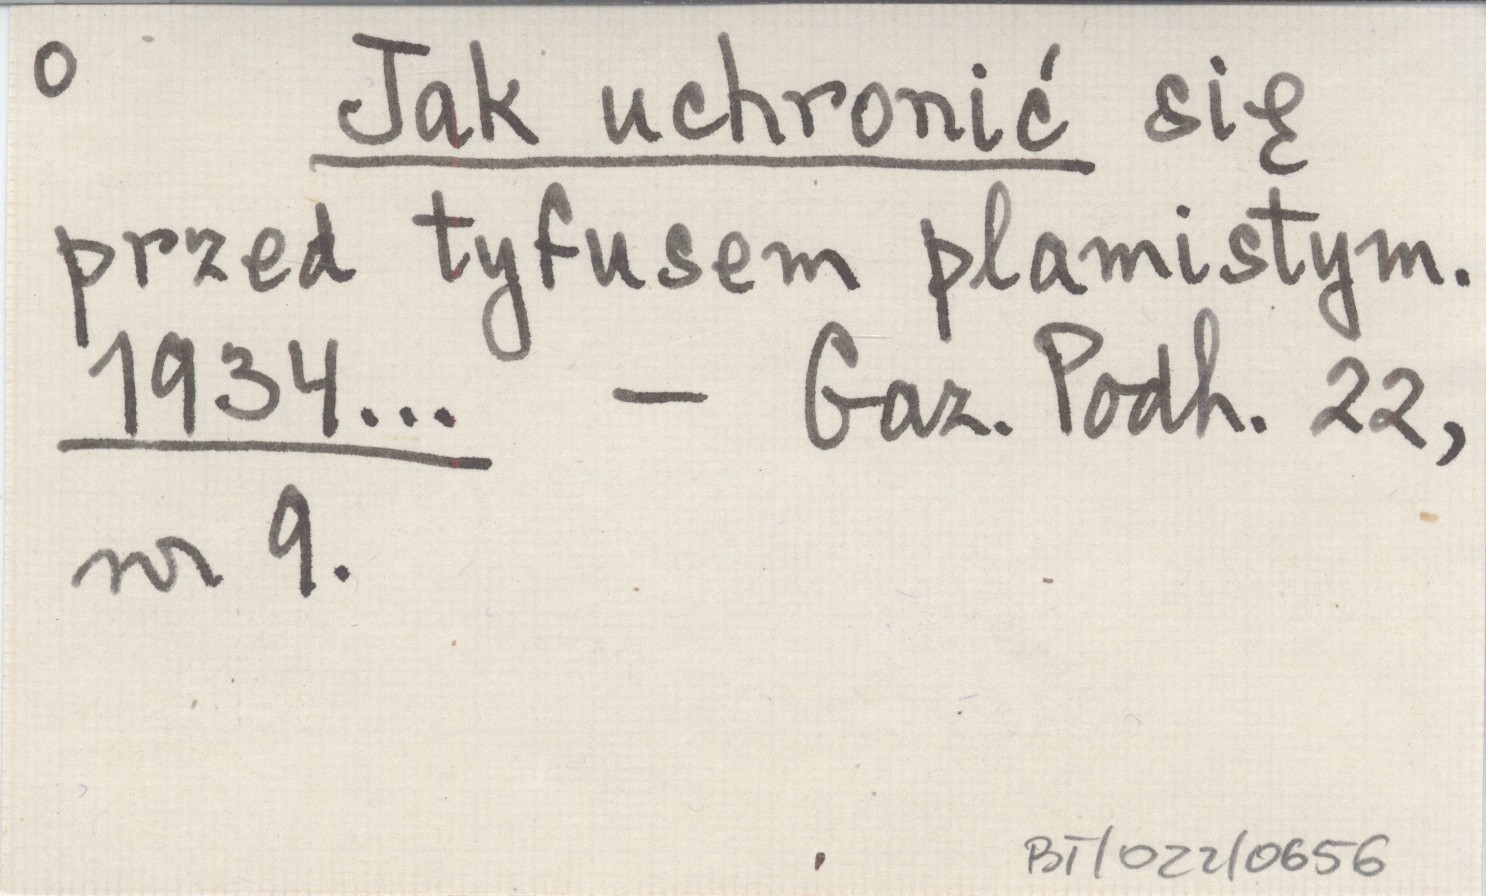 o
Jak uchronić się
przed tyfusem plamistym.
1934... – Gaz. Podh. 22,
nr 9.
BT/022/0656